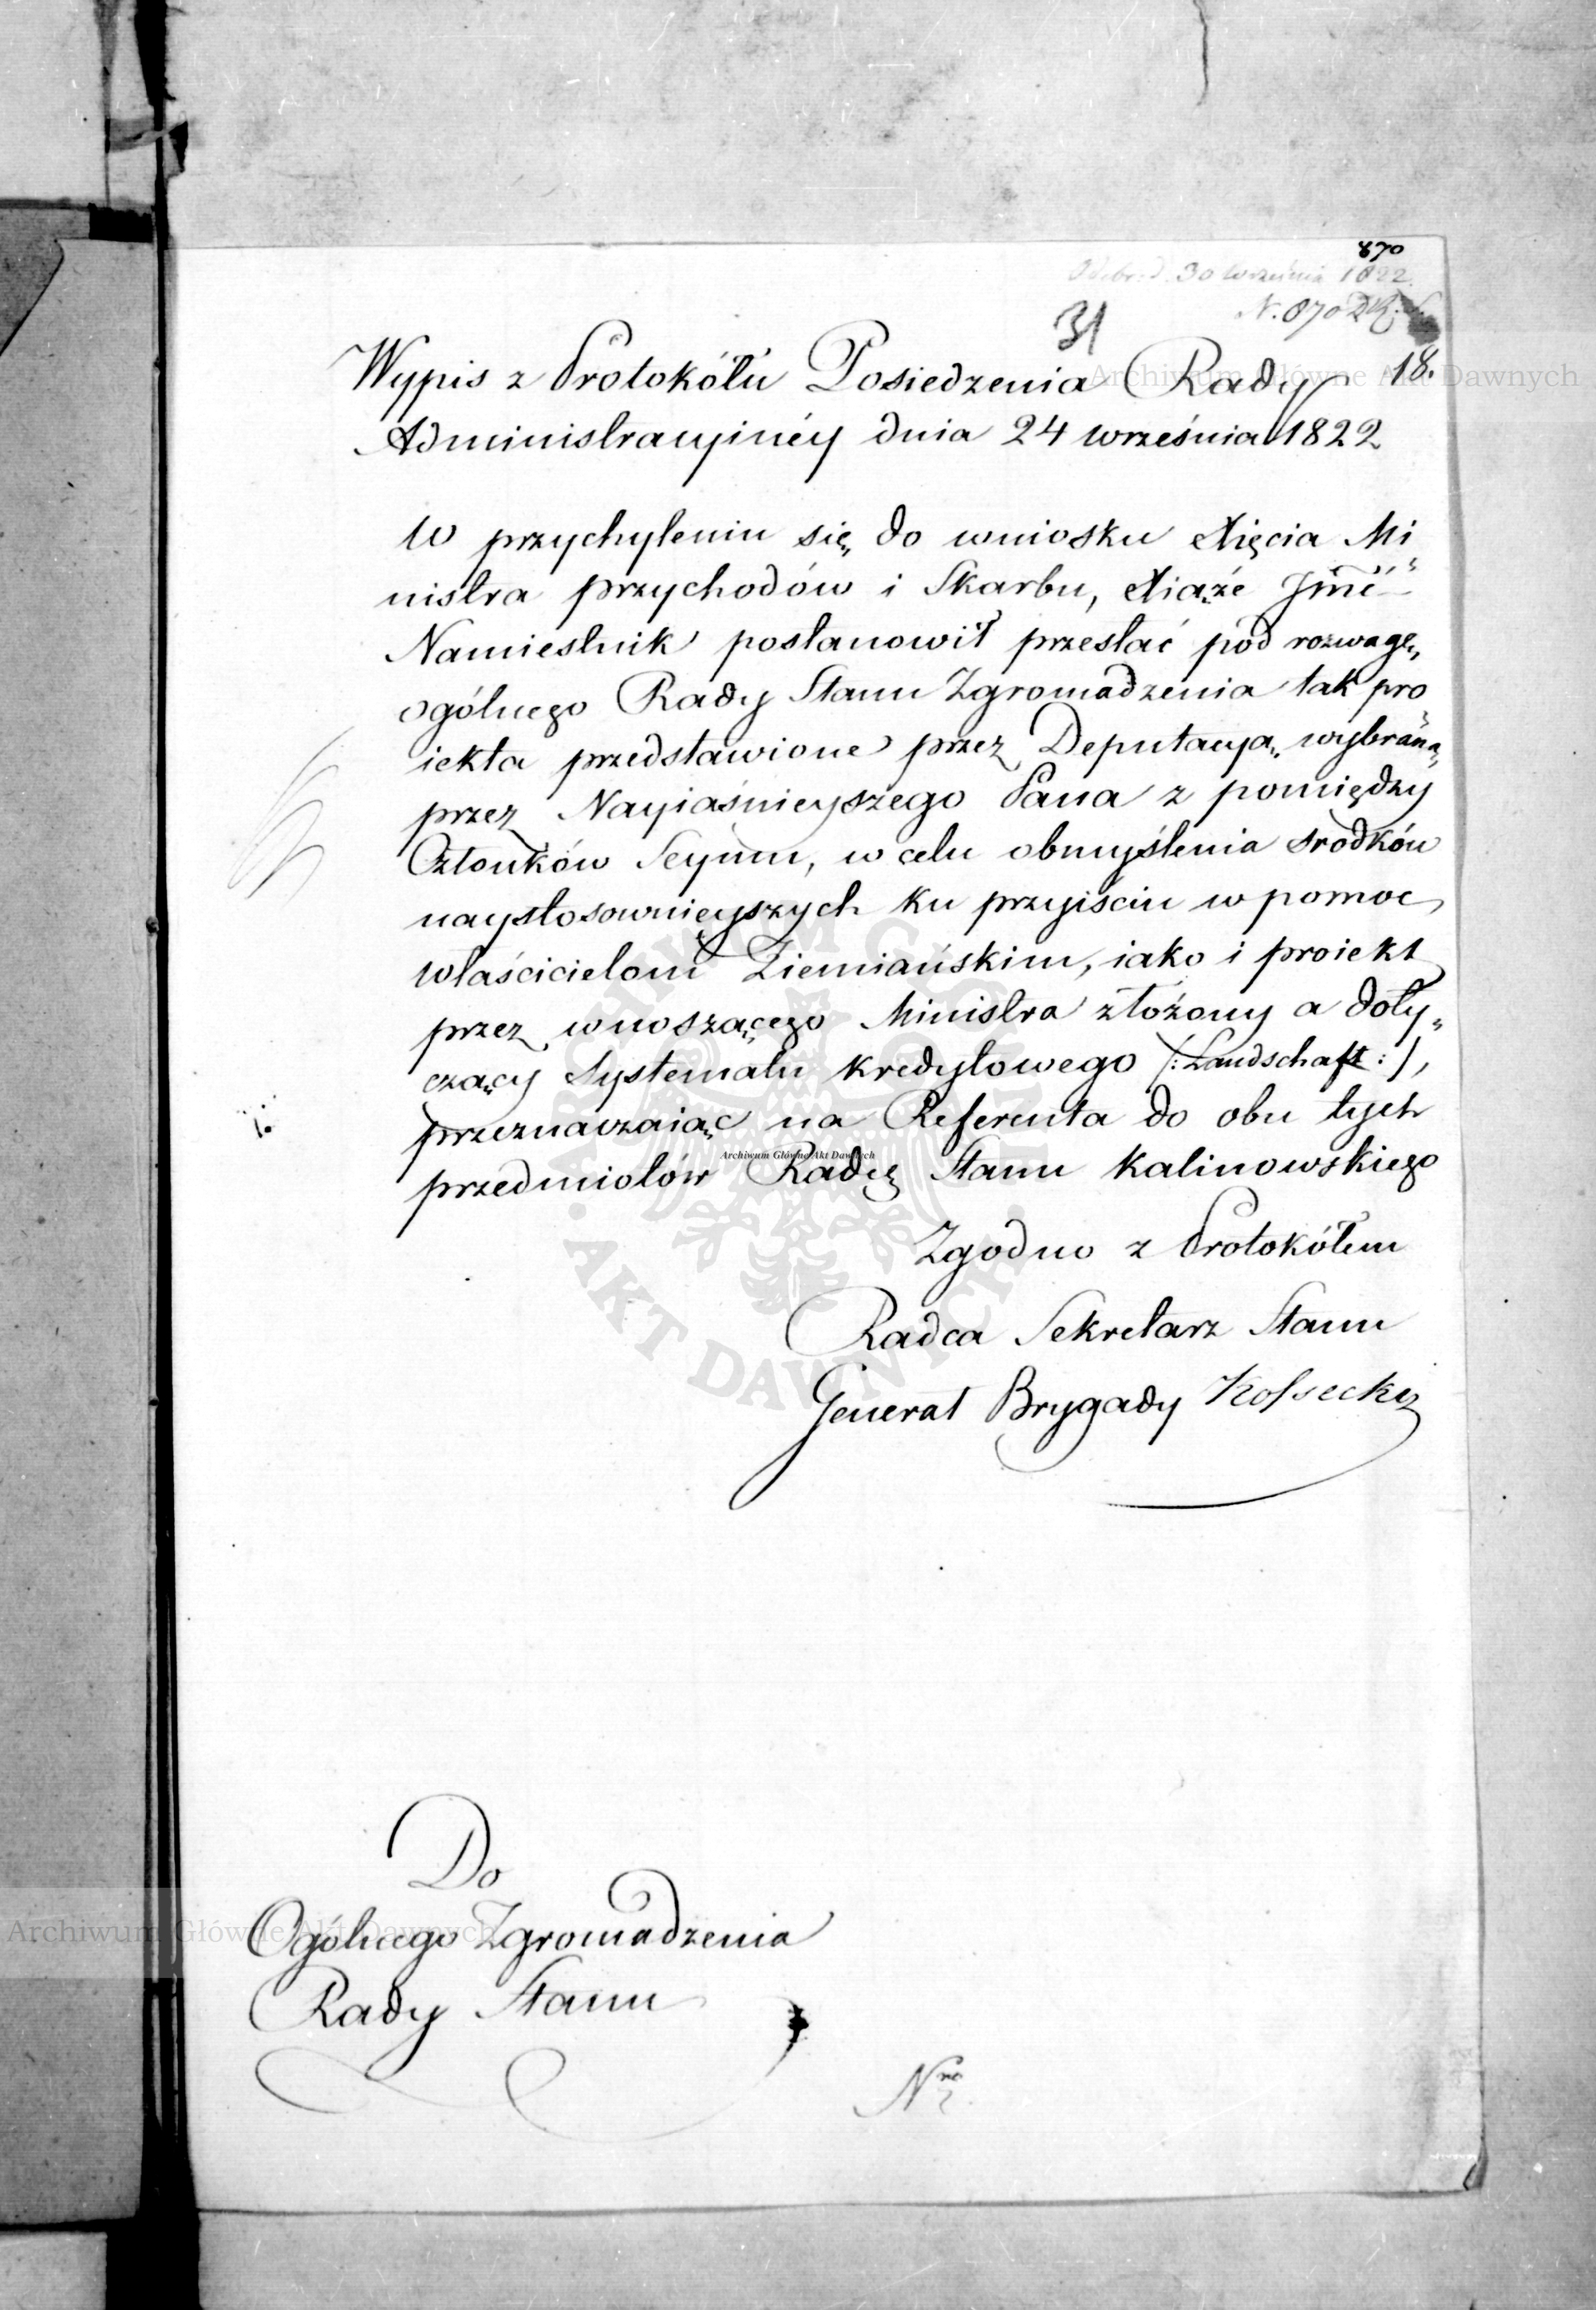 870
Odebr: d. 30 Września 1822.
N. 870
31
18.
Wypis z Protokółu Posiedzenia Rady
Administracyinéy dnia 24 września 1822
W przychyleniu się do wniosku Xięcia Mi
nistra przychodów i Skarbu, Xiąże Jmć
Namiestnik postanowił przesłać pod rozwagę,
ogólnego Rady Stanu Zgromadzenia tak pro
iekta przedstawione przez Deputacyą wybraną
przez Nayiaśnieyszego Pana z pomiędzy
Członków Seymu, w celu obmyślenia srodków
naystosownieyszych ku przyiściu w pomoc
właścicielom Ziemiańskim, iako i proiekt
przez wnoszącego Ministra złożony a doty„
czący Systematu kredytowego /: Landschaft :/,
przeznaczaiąc na Referenta do obu tych
przedmiotów Radcę Stanu Kalinowskiego
Zgodno z Protokółem
Radca Sekretarz Stanu
Generał Brygady Kossecki
Do
Ogólnego Zgromadzenia
Rady Stanu
Nro
Archiwum Główne Akt Dawnych
Archiwum Główne Akt Dawnych
Archiwum Główne Akt Dawnych
ARCHIWUM GŁÓWNE · AKT DAWNYCH ·